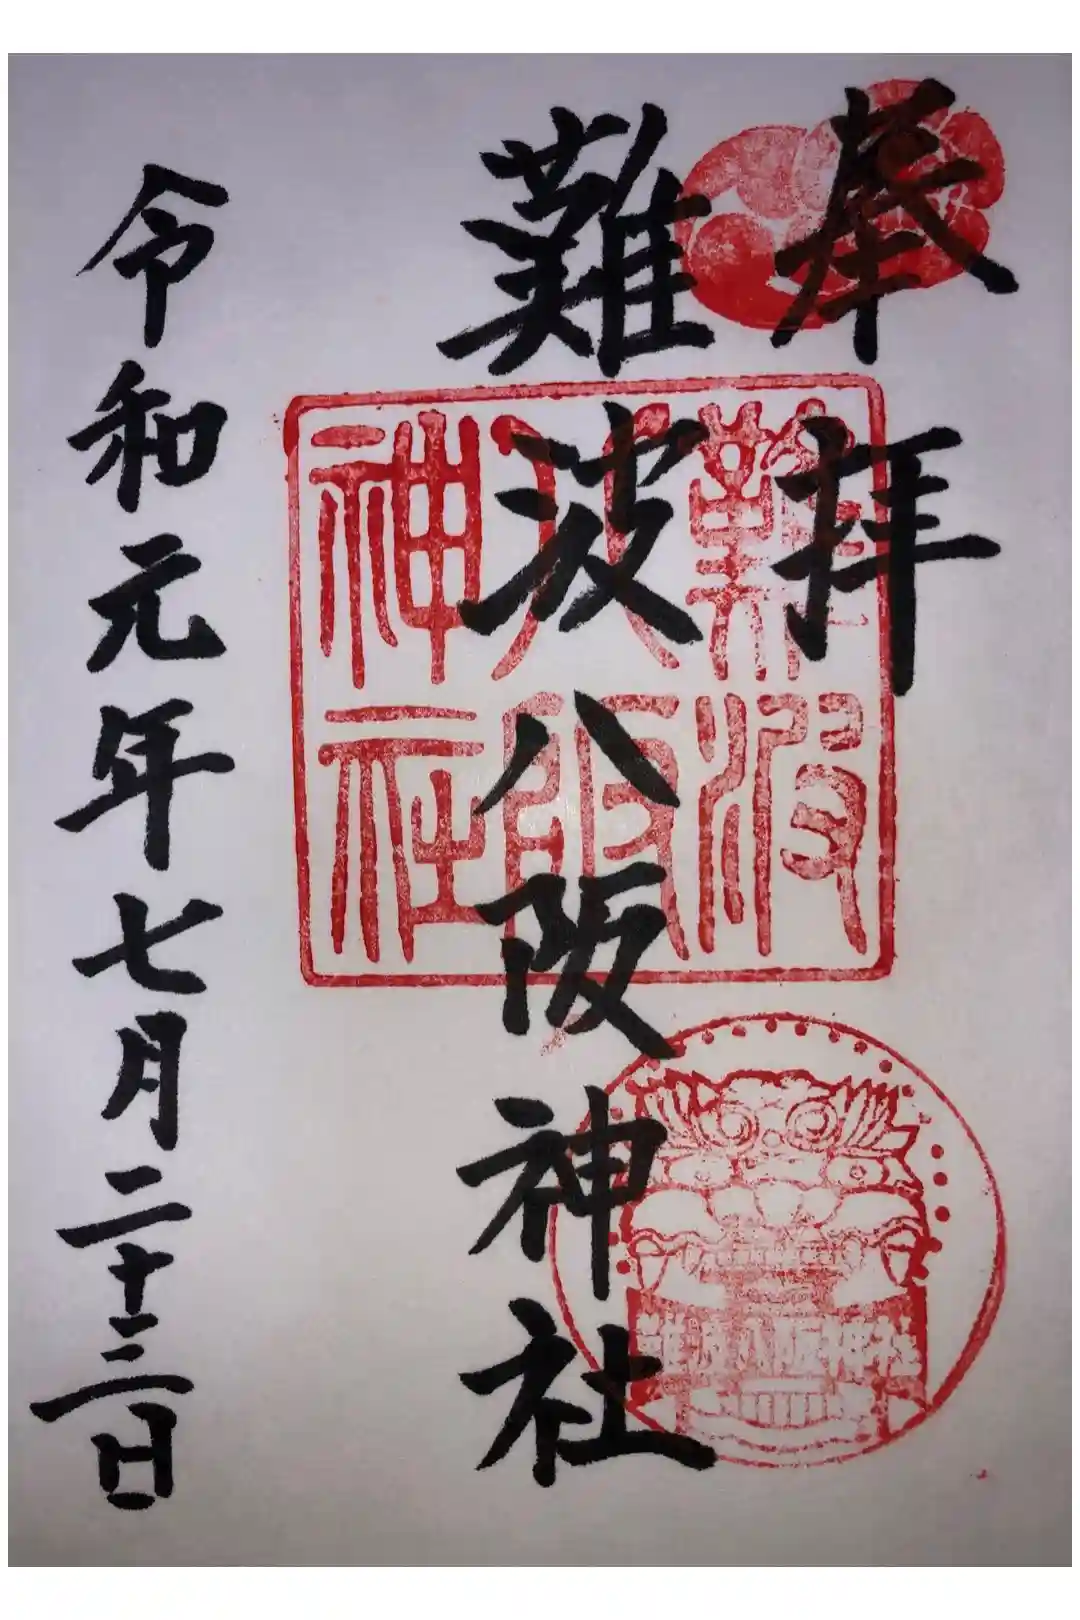 奉拝
難波八阪神社
難波
八阪
神社
難波八阪神社
令和元年七月二十三日